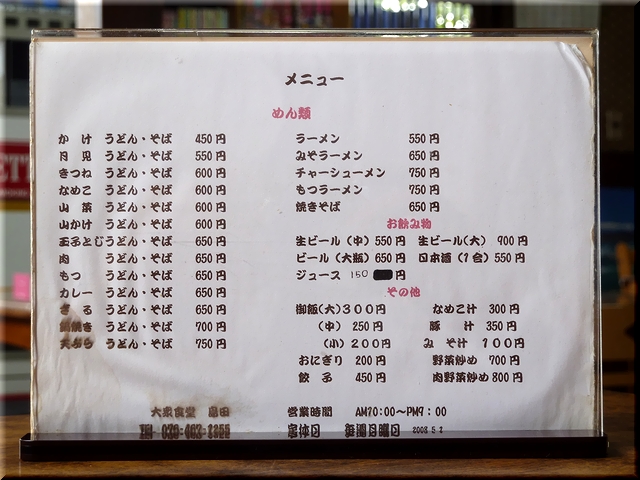 メニュー
めん類
かけ うどん・そば 450円
月見 うどん・そば 550円
きつね うどん・そば 600円
なめこ うどん・そば 600円
山菜 うどん・そば 600円
山かけ うどん・そば 600円
玉子とじうどん・そば 650円
肉 うどん・そば 650円
もつ うどん・そば 650円
カレー うどん・そば 650円
ざる うどん・そば 650円
鍋焼き うどん・そば 700円
天ぷら うどん・そば 750円
ラーメン 550円
みそラーメン 650円
チャーシューメン 750円
もつラーメン 750円
焼きそば 650円
お飲み物
生ビール(中) 550円 生ビール(大) 900円
ビール(大瓶) 650円 日本酒(1合) 550円
ジュース 150 円
その他
御飯(大)300円 なめこ汁 300円
(中) 250円 豚汁 350円
(小) 200円 みそ汁 100円
おにぎり 200円 野菜炒め 700円
餃子 450円 肉野菜炒め 800円
大衆食堂
営業時間 AM10:00〜PM9:00
定休日 毎週日曜日